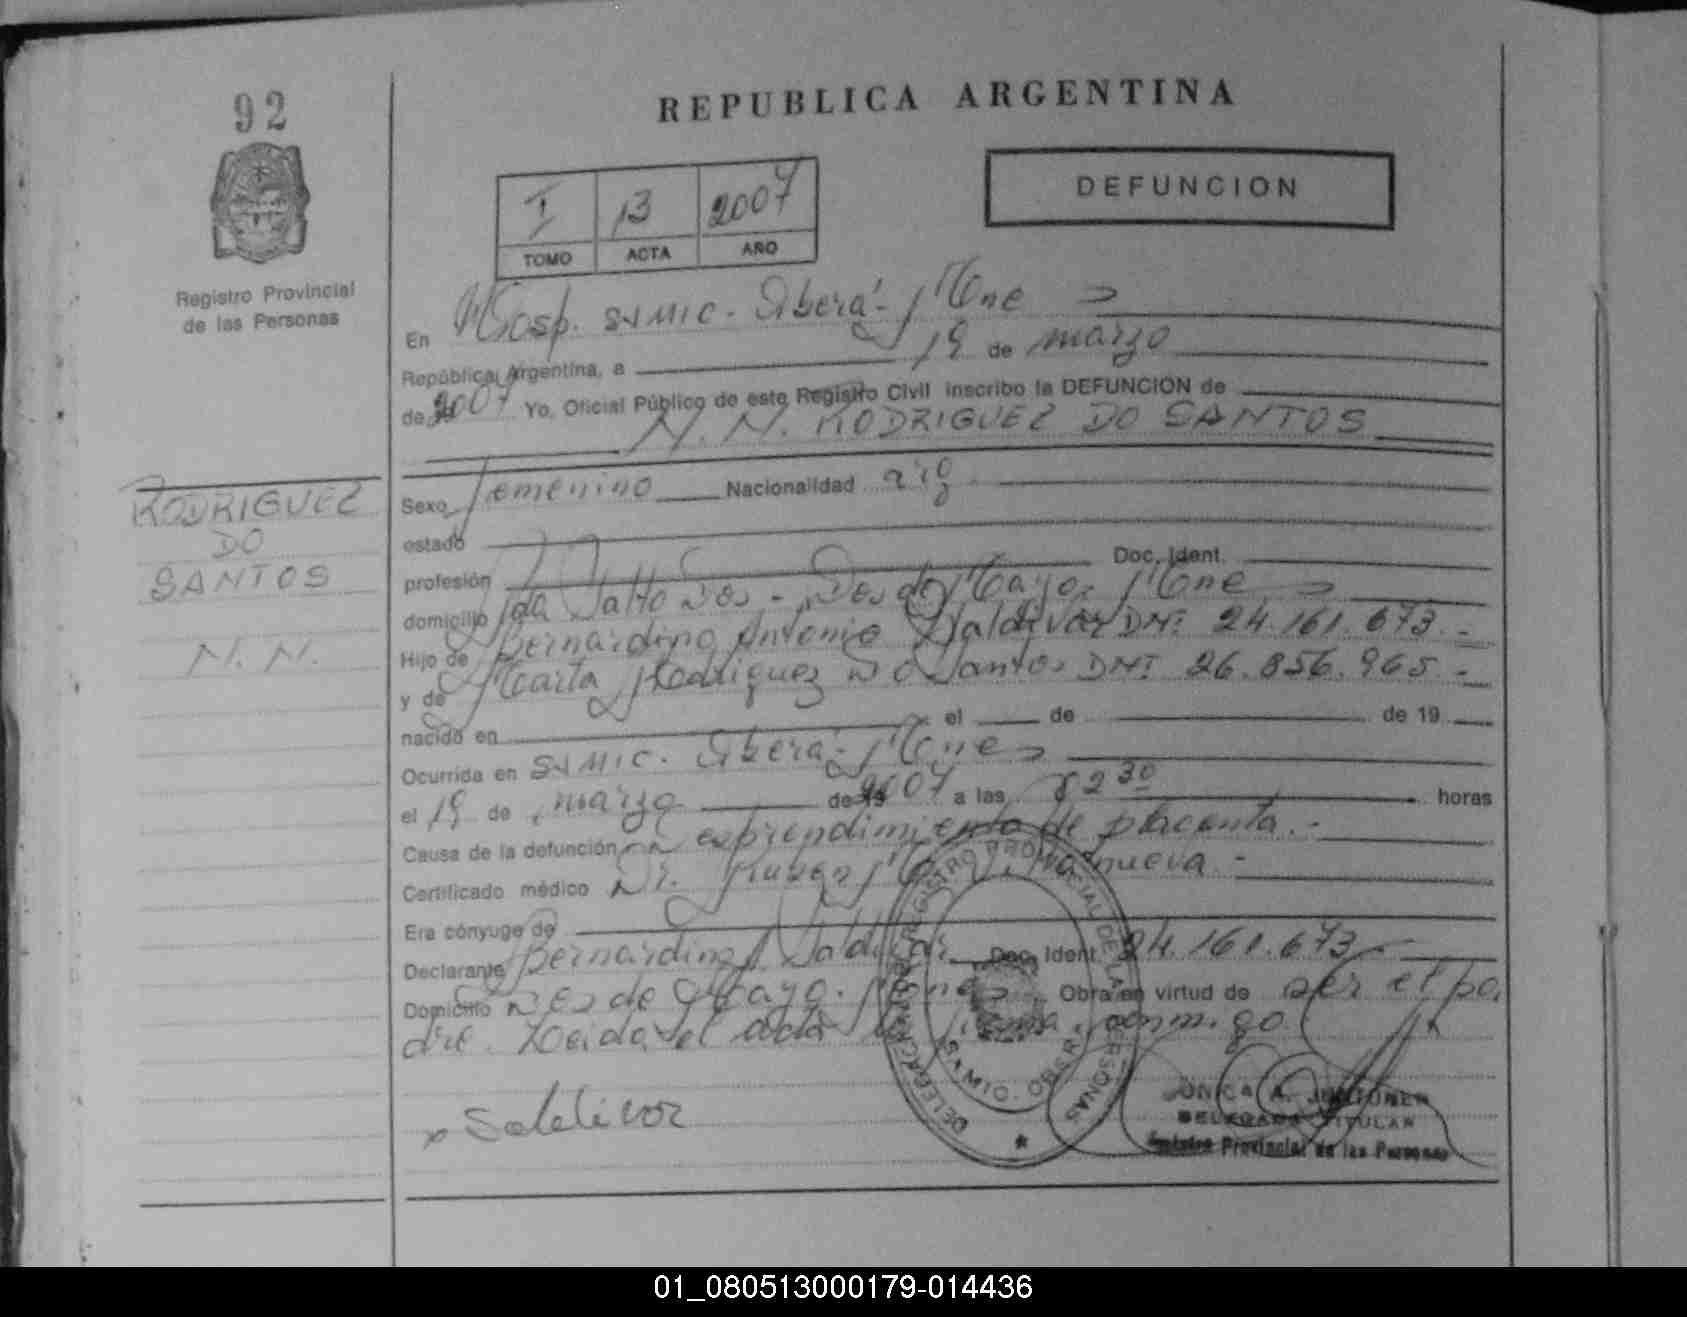 92
REPUBLICA ARGENTINA
DEFUNCION
I 13 2007
TOMO ACTA AÑO
Registro Provincial
de las Personas
En Hosp. SAMIC. Oberá - Mnes
República Argentina, a 19 de marzo
de 2007 Yo, Oficial Público de este Registro Civil inscribo la DEFUNCION de
N. N. RODRIGUEZ DO SANTOS
RODRIGUEZ
DO
SANTOS
N. N.
Sexo femenino Nacionalidad arg
estado
profesión Doc. Ident.
domicilio Salto Dos - Dos de Mayo. Mnes
Hijo de Bernardino Antonio Saldivar DNI 24.161.673.-
y de Marta Rodriguez Do Santos DNI 26.856.965.-
nacido en el de de 19
Ocurrida en SAMIC. Oberá - Mnes
el 19 de marzo de 19 2007 a las 30 horas
Causa de la defunción desprendimiento de placenta.-
Certificado médico Dr. Villanueva.-
Era cónyuge de
Declarante Bernardino A Saldivar Doc. Ident. 24.161.673.-
Domicilio Dos de Mayo. Mnes Obra en virtud de ser el pa
dre. Leida el acta la firma conmigo.
x Saldivar
DELEGACION REGISTRO PROVINCIAL DE LAS PERSONAS
SAMIC. OBERA
DELEGADA TITULAR
Registro Provincial de las Personas
01_080513000179-014436